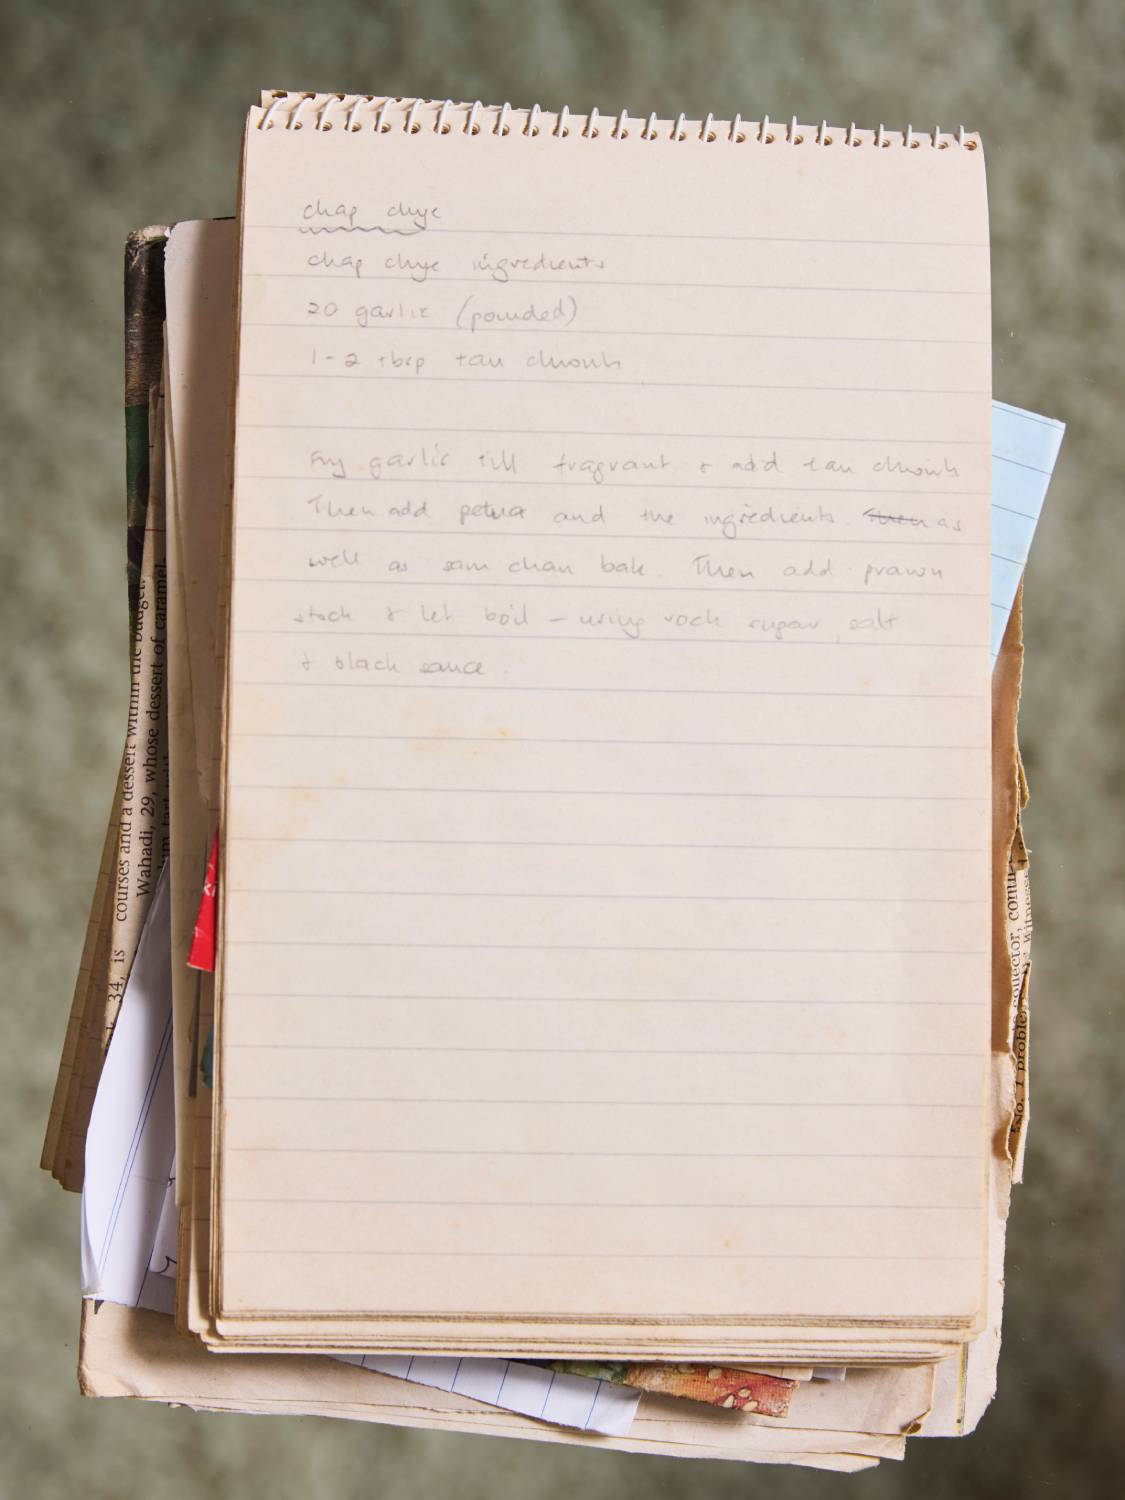 chap chye
chap chye ingredients
20 garlic (pounded)
1-2 tbsp tau cheonh
Fry garlic till fragrant & add tau cheonh
Then add petua and the ingredients then as
well as sam chan bak. Then add prawn
stock & let boil – using rock sugar, salt
& black sauce.
courses and a dessert within the budget.
Wahadi, 29, whose dessert of caramel
34, is
collector,
Witness
No. 1